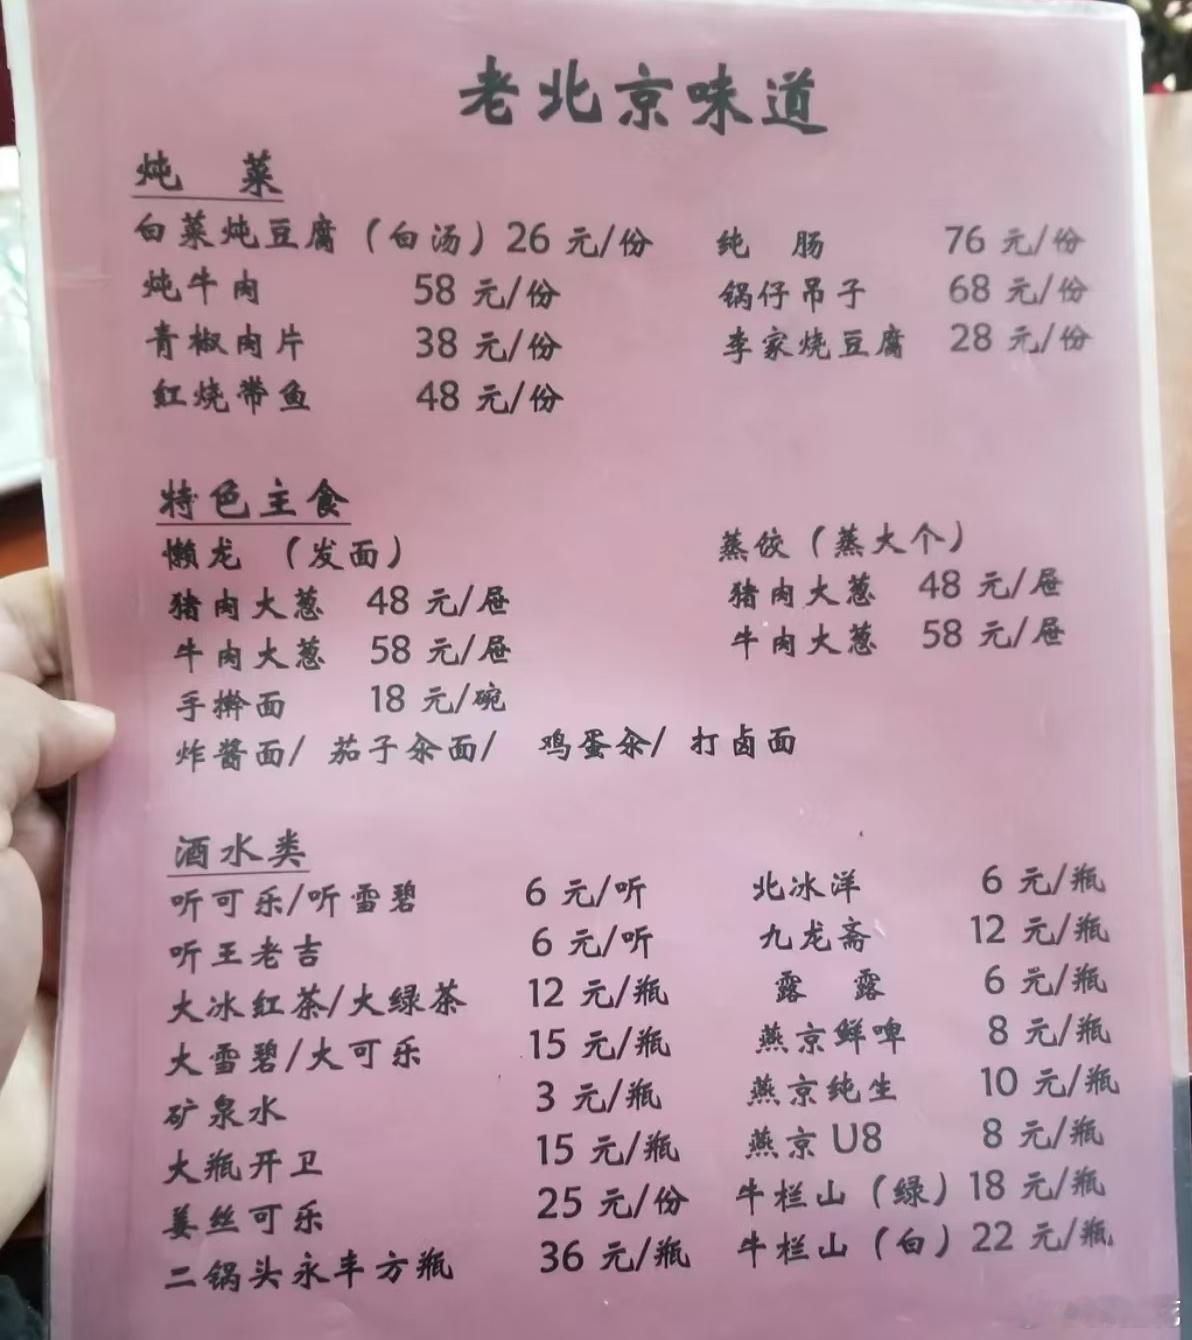 老北京味道
炖 菜
白菜炖豆腐（白汤）26 元/份 纯 肠 76 元/份
炖牛肉 58 元/份 锅仔吊子 68 元/份
青椒肉片 38 元/份 李家烧豆腐 28 元/份
红烧带鱼 48 元/份
特色主食
懒龙 （发面） 蒸饺（蒸大个）
猪肉大葱 48 元/屉 猪肉大葱 48 元/屉
牛肉大葱 58 元/屉 牛肉大葱 58 元/屉
手擀面 18 元/碗
炸酱面/ 茄子氽面/ 鸡蛋氽/ 打卤面
酒水类
听可乐/听雪碧 6 元/听 北冰洋 6 元/瓶
听王老吉 6 元/听 九龙斋 12 元/瓶
大冰红茶/大绿茶 12 元/瓶 露 露 6 元/瓶
大雪碧/大可乐 15 元/瓶 燕京鲜啤 8 元/瓶
矿泉水 3 元/瓶 燕京纯生 10 元/瓶
大瓶开卫 15 元/瓶 燕京U8 8 元/瓶
姜丝可乐 25 元/份 牛栏山（绿）18 元/瓶
二锅头永丰方瓶 36 元/瓶 牛栏山（白）22 元/瓶